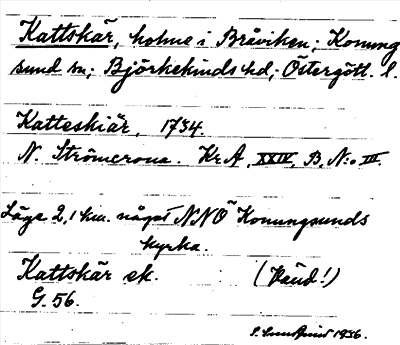 Kattskär, holme i Bråviken; Konung
sund sn; Björkekinds hd; Östergötl. l.
Katteskiär, 1734.
N. Strömcrona. Kr A, XXIV, B, N:o III.
Läge 2,1 km. något NNO Konungsunds
kyrka.
Kattskär ek. (känd!)
G. 56.
1936.